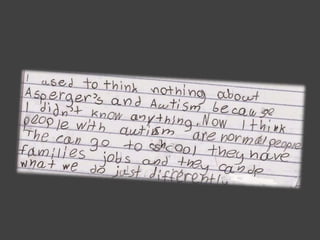 I used to think nothing about
Asperger's and Autism because
I didn't know anything. Now I think
people with autism are normal people
The can go to shcool they have
families jobs and they can do
what we do just differently